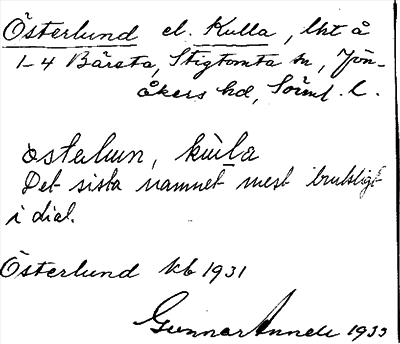 Österlund el. Kulla, lht å
1-4 Bärsta, Stigtomta sn, Jön-
åkers hd, Söml. l.
östalun, kùla
Det sista namnet mest brukligt
i dial.
Österlund kb 1931
Gunnar Linde 1933